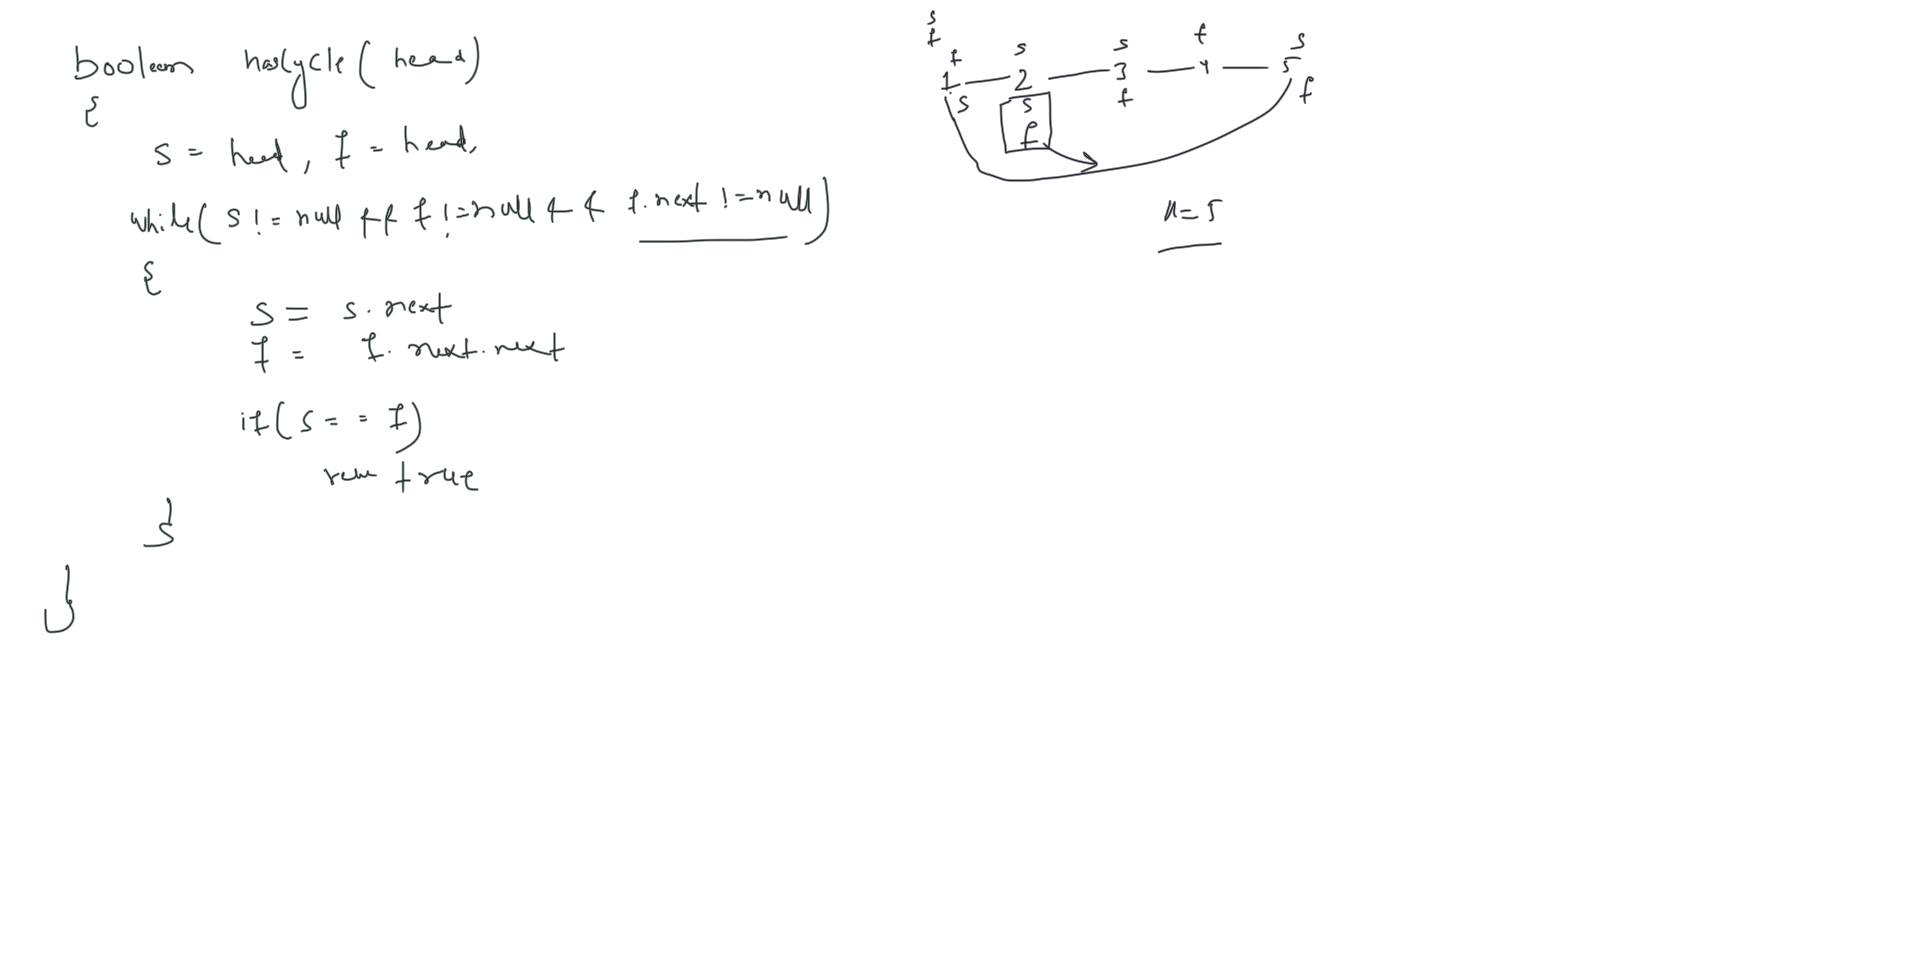 boolean hasCycle(head)
{
s = head, f = head,
while(s != null && f != null && f.next != null)
{
s = s.next
f = f.next.next
if(s == f)
true
}
}
s
f
f s s f s
1 2 3 4 5
s s f f
f
n=5